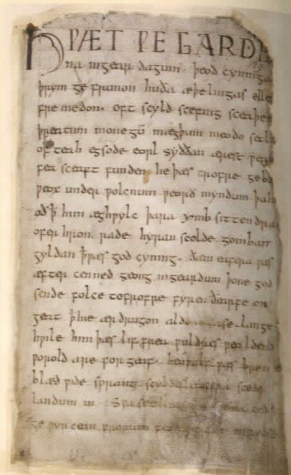 HǷÆT ǷE GARDE
na ingear dagum. þeod cyninga
þrym ge frunon huða æþelingas elle
fre medon. oft scyld scefing sceaþe
þreatum monegū mægþum meodo setla
of teah egsode eorl syððan ærest ƿear
fea sceaft funden he þæs frofre geba
ƿeox under ƿolcnum ƿeorð myndum þah
oð þ him æghƿylc þara ymb sittendra
ofer hron rade hyran scolde gomban
gyldan þæt ƿæs god cyning. ðæm eafera ƿæs
æfter cenned geong ingeardum þone god
sende folce tofrofre fyren ðearfe on
geat þ hie ær drugon aldor ase. lange
hƿile him þæs lif frea ƿuldres ƿealdend
ƿorold are for geaf. beoƿulf ƿæs breme
blæd ƿide sprang scyldes eafera scede
landum in. Sƿa sceal
ge ƿyrcean fromum